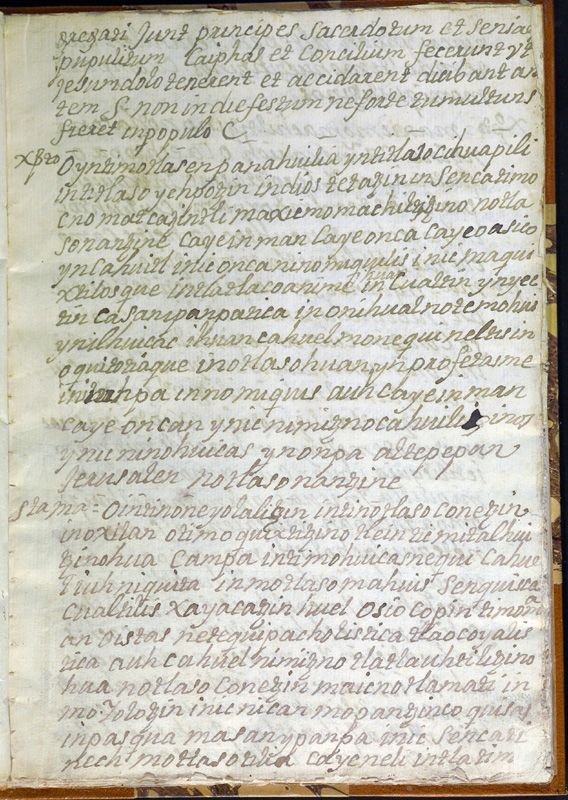 gregati Sunt principes Sacerdotum et Senia
pupulitum Caiphas et Concilium fecerunt Vt
Jesumdolo tenerent et accidarent dicibant au
tem S. non indie festum ne forte tumultuns
fieret in populo C
Xpto Oyntinotlasenpanahuilia yntitlasocihuapili
intitlaso ychpotzin in Dios tetatzin in Sencatimo
cnomatcatzintli maxicmomachiltitzino notla
sonantzine Caye inman Caye onca Cayeoasico
yn Cahuitl inic oncaninomiquilis inic maqui
xtilosque intlatlacoanime in Cualtin ynyec
tin Ca Sanipanpatica inonihualnotemohui
ynilhuicac ihuan cahuel monequi neltis in
oquitotiaque inotlasohuan yn profetasme
innomiquis auh Caye in man
Caye oncan ynic nimitznocahuilis inos
ynic ninohuicas ynonpa altepepan
Jerusalen notlasonantzine
Stama = Ointinoneyolalitzin intinotlasoconetzin
inoxitlan otimoquixtitzino tlein timitalhui
tzinohua Campa intimohuicasnequi Cahue
l iuhniquita inmotlasomahuis Senquisca
Cualtilis Xayacatzin huel Osiocopintimoma
an Distas netequipacholistica tlaocoyalis
tica auh cahuel nimitznotlatlauhtilitzino
hua notlasoConetzin maicnotlamati in
moYolotzin inicnican mopantzinco quisas
inpasqua masanypanpa inic Sencati
nech motlasotilia Cayeneli intlatim